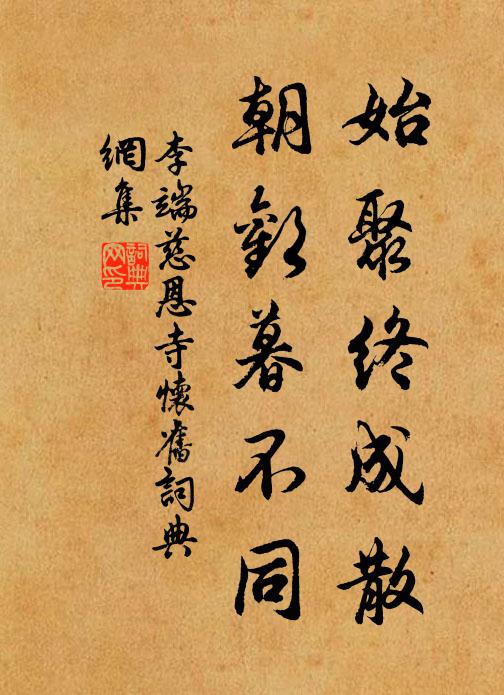 始聚終成散
朝歡暮不同
李端慈恩寺懷舊詞典
網集
詞典
网印